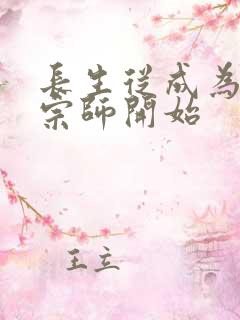 長生從成為
宗師開始
王立